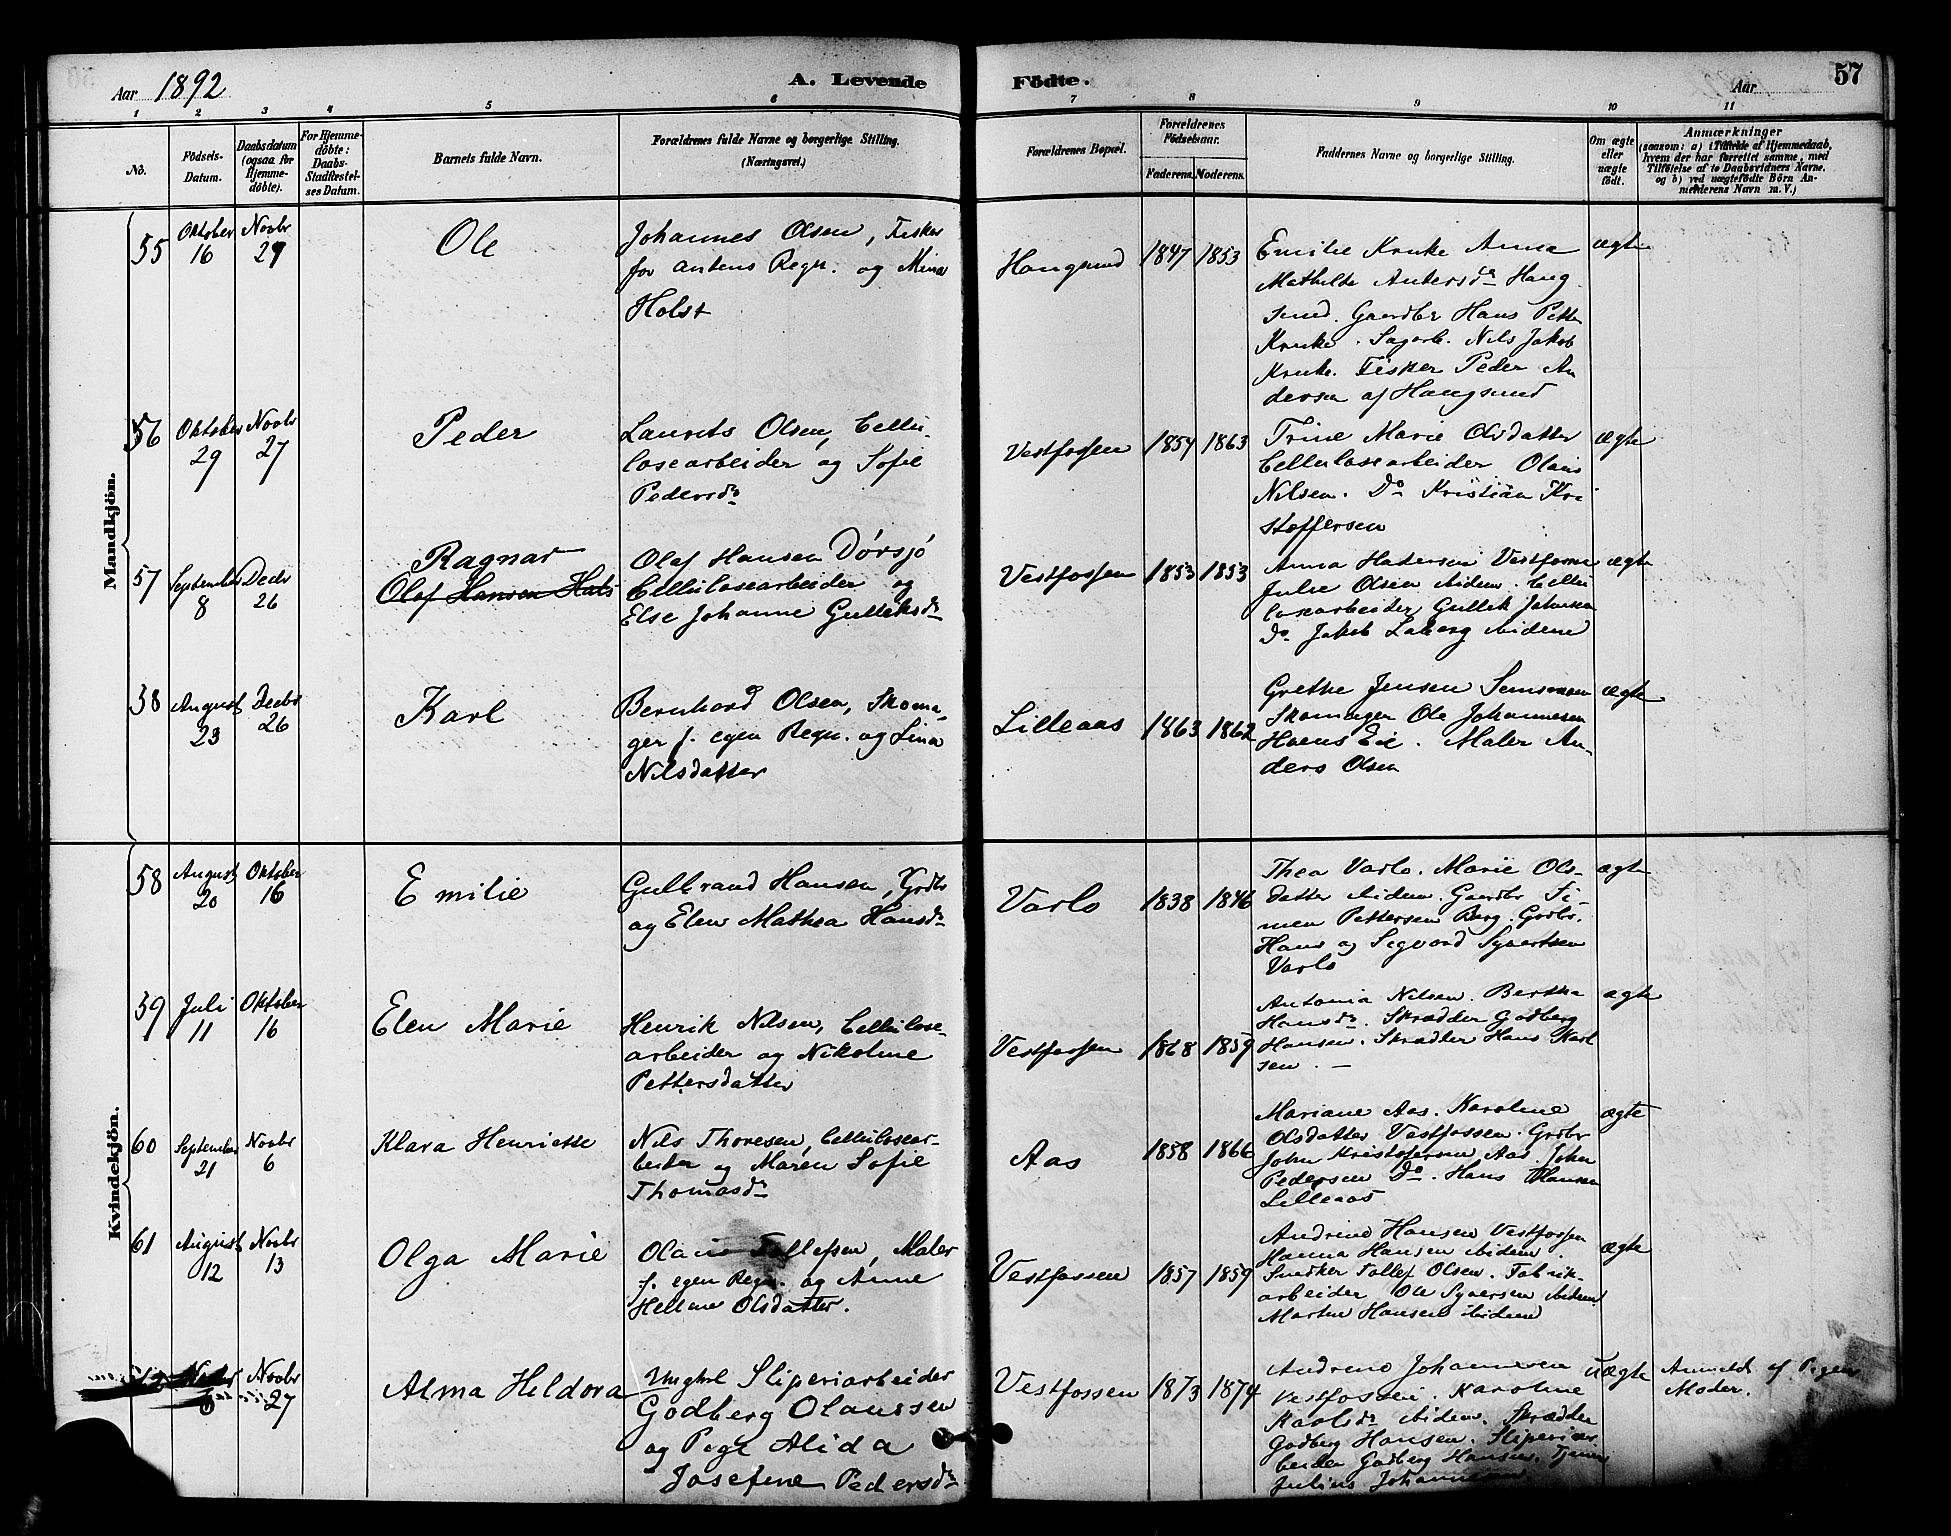 Aar 1892
A. Levende
Födte.
Aar
57
1 2 3 4 5 6 7 8 9 10 11
No.
Födsels-
Datum.
Daabsdatum
(ogsaa for
Hjemme-
döbte).
For Hjemme-
döbte:
Daabs-
Stadfæstel-
ses Datum.
Barnets fulde Navn.
Forældrenes fulde Navne og borgerlige Stilling.
(Næringsvei.)
Forældrenes Bopæl.
Forældrenes
Födselsaar.
Faderens. Moderens.
Faddernes Navne og borgerlige Stilling.
Om ægte
eller
uægte
födt.
Anmærkninger
(saasom: a) i Tilfælde af Hjemmedaab,
hvem der har forrettet samme, med
Tilföielse af to Daabsvidners Navne,
og b) ved uægtefödte Börn An-
melderens Navn m. V.)
Mandkjön.
55
Oktober
16
Novbr
29
Ole
Johannes Olsen, Fisker
for andens Regn. og Mina
Holst
Hougsund
1847 1853
Emilie Kruke Anna
Mathilde Andersdr Houg
sund. Gaardbr Hans Petter
Kruke. Sagarb. Nils Jakob
Kruke. Fisker Peder An
dersen af Hougsund
ægte
56
Oktober
29
Novbr
27
Peder
Laurits Olsen, Cellu-
losearbeider og Sofie
Pedersdr
Vestfossen
1854 1863
Trine Marie Olsdatter
Cellulosearbeider Olaus
Nilsen. Do Kristian Kri
stoffersen
ægte
57
September
8
Decbr
26
Ragnar
Olaf Hansen
Olaf Hansen Dörsjö
Cellulosearbeider og
Else Johanne Gulliksdr
Vestfossen
1853 1853
Anna Vestfossen
Julie Olsen ibidem. Cellu
losearbeider Gullik Johnsen
Do Jakob Laberg ibidem
ægte
58
August
23
Decbr
26
Karl
Bernhard Olsen, Skoma-
ger f. egen Regn. og Lina
Nilsdatter
Lilleaas
1863 1862
Grethe Jensen
Skomager Ole Johannesen
Hoens Eie. Maler An-
ders Olsen
ægte
Kvindekjön.
58
August
20
Oktober
16
Emilie
Gulbrand Hansen, Grdbr
og Elen Mathea Hansdr
Varlo
1838 1846
Thea Varlo. Marie Ols-
datter ibidem. Gaardbr Si-
men Pettersen Berg. Grdbr.
Hans og Sigvard Syvertsen
Varlo
ægte
59
Juli
11
Oktober
16
Elen Marie
Henrik Nilsen, Cellulose-
arbeider og Nikoline
Pettersdatter
Vestfossen
1868 1859
Antonia Nilsen. Berthe
Hansdr. Skrædder Godberg
Hansen. Skrædder Hans Karl
sen.
ægte
60
September
21
Novbr
6
Klara Henriette
Nils Thoresen, Cellulosear-
beider og Maren Sofie
Thomasdr
Aas
1858 1866
Mariane Aas. Karoline
Olsdatter Vestfossen. Grdbr
John Kristofersen Aas. John
Pedersen Do. Hans Hansen
Lilleaas
ægte
61
August
12
Novbr
13
Olga Marie
Olaus Tollefsen, Maler
f. egen Regn. og Anne
Helline Olsdatter.
Vestfossen
1857 1859
Andrine Hansen Vestfossen
Hanna Hansen ibidem.
Snedker Tollef Olsen. Fabrik-
arbeider Ole Syversen ibidem
Martin Hansen ibidem
ægte
Novbr
27
Alma Heldora
Ungkl Sliperiarbeider
Godberg Olaussen
og Pige Alida
Josefine Pedersdr
Vestfossen
1873 1874
Andrine Johannesen
Vestfossen. Karoline
Karlsdr ibidem. Skrædder
Godberg Hansen. Sliperiar
beider Godberg Hansen.
Julius Johannesen
uægte
Anmeldt af Pigens
Moder.